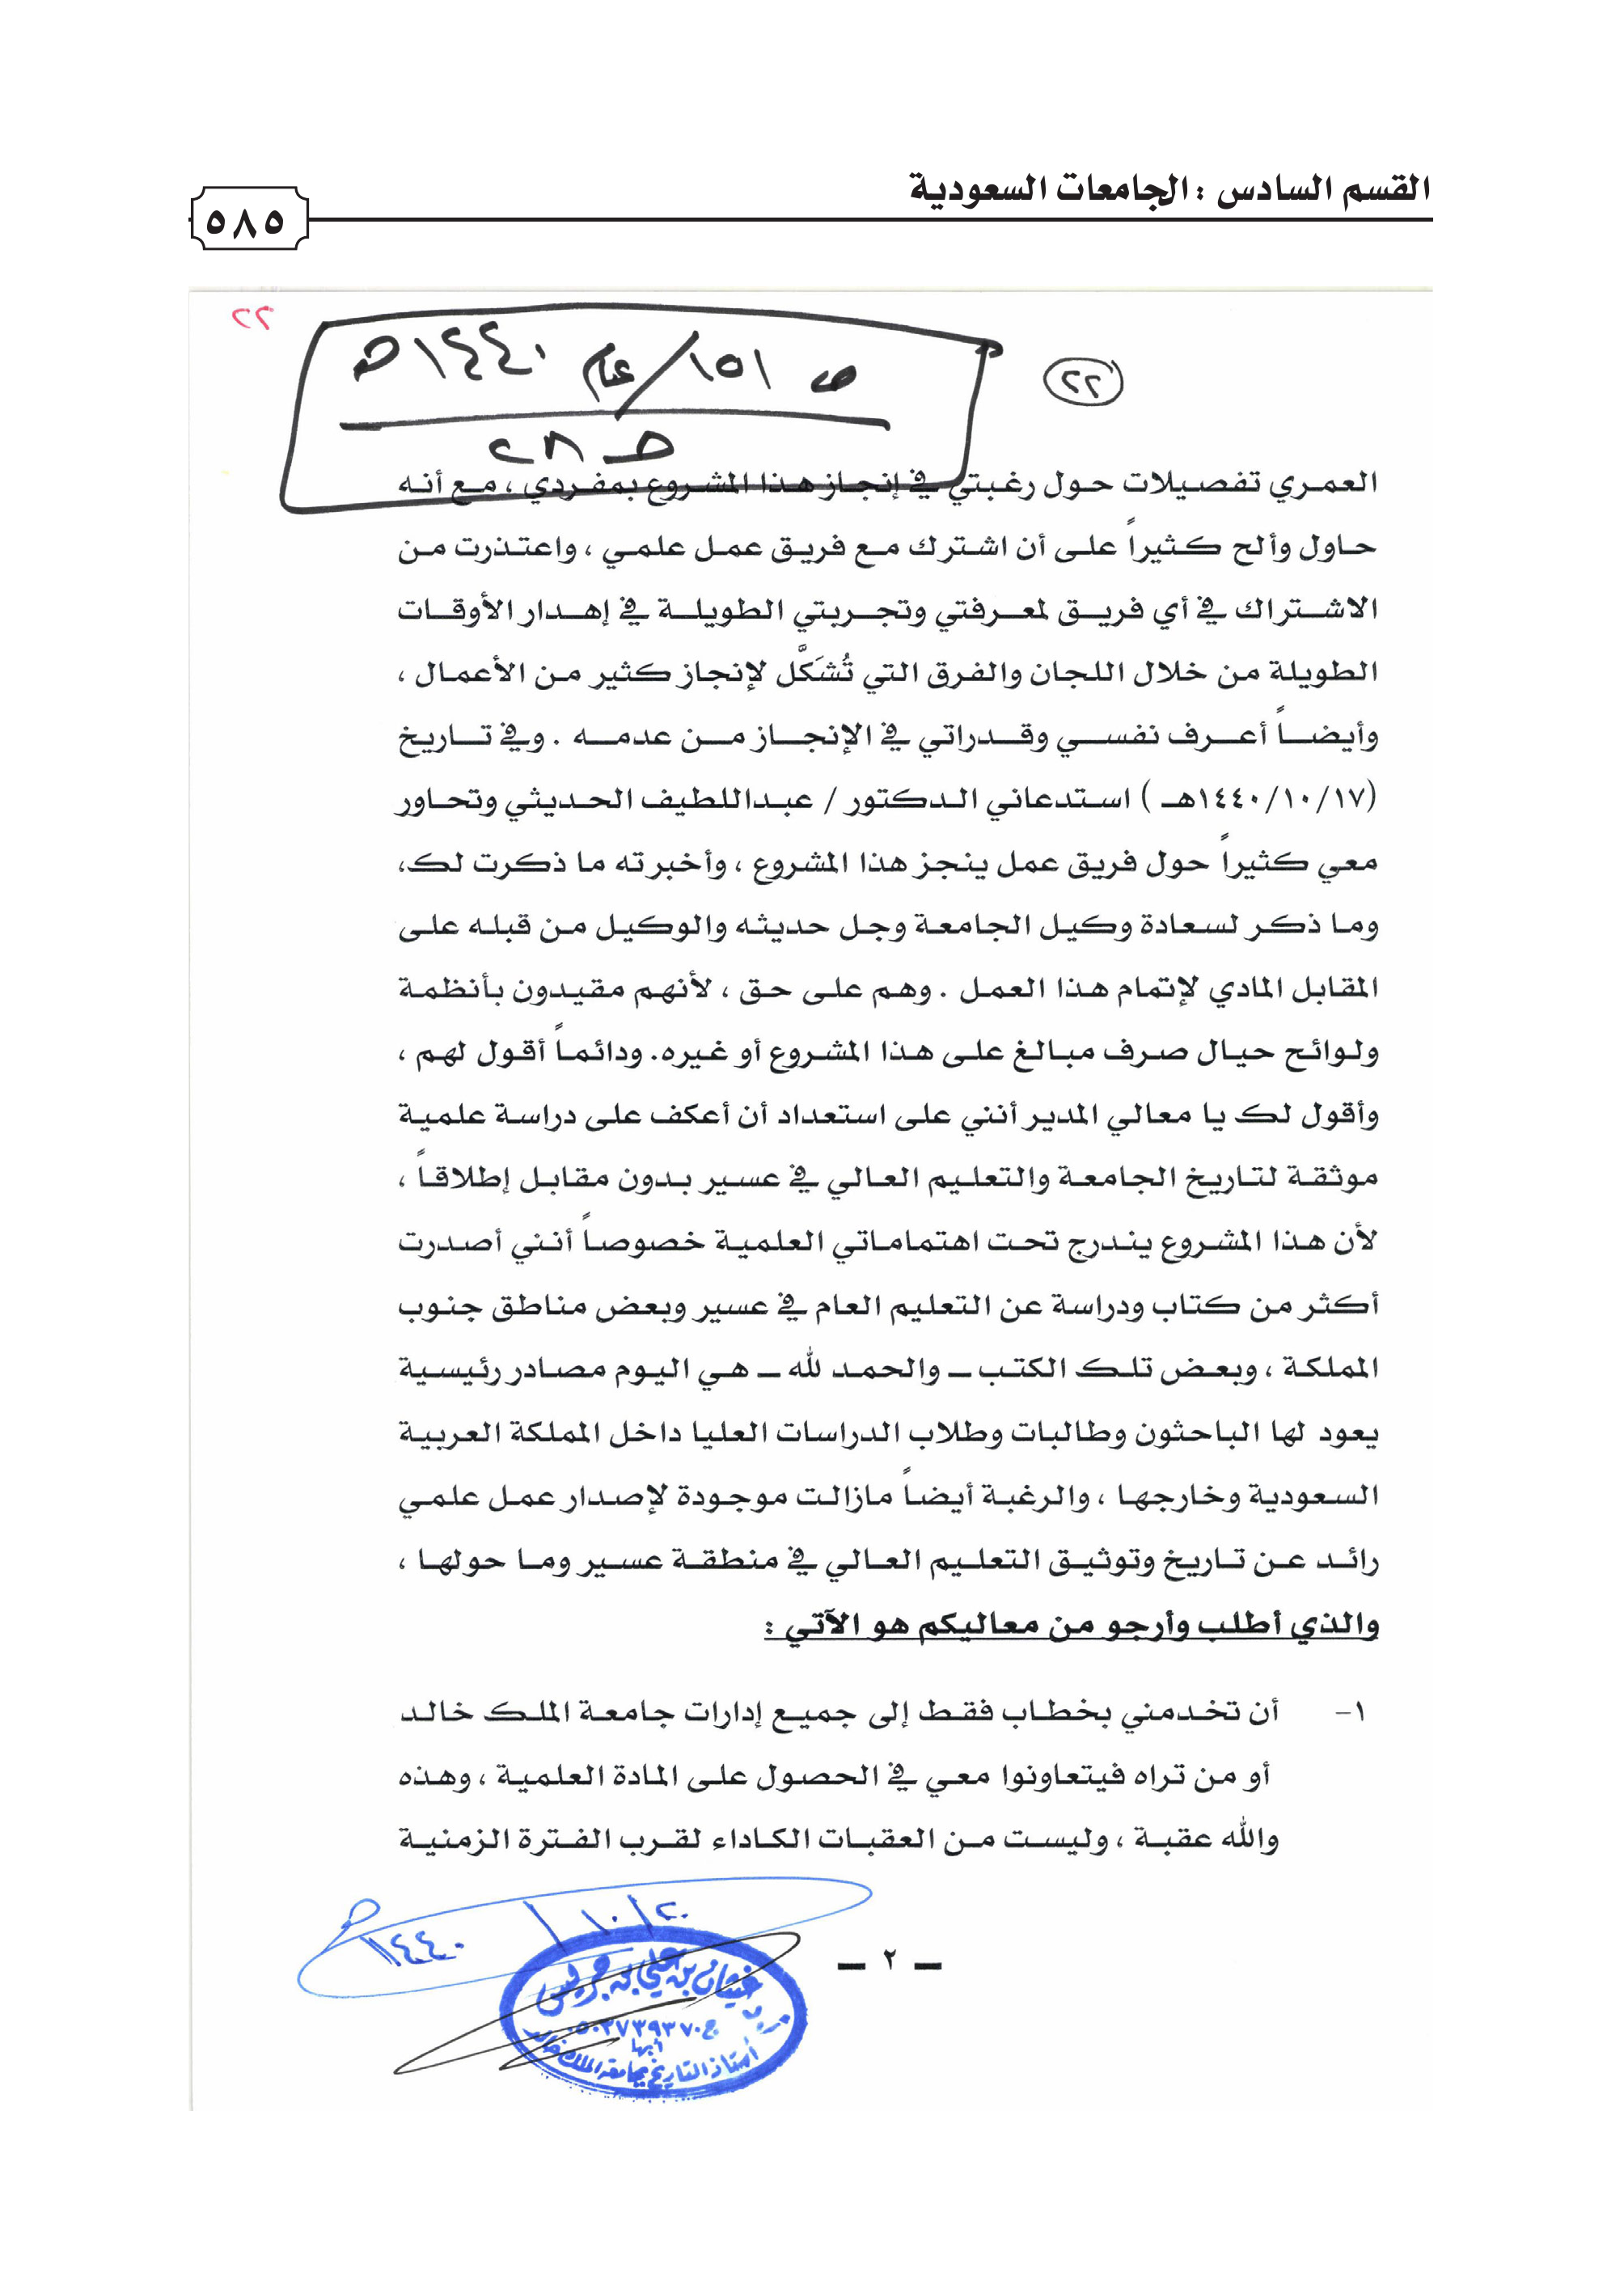 القسم السادس : الجامعات السعودية
٥٨٥
٢٢
٢٢
ص ١٥١/ عام ١٤٤٠هـ
العمري تفصيلات حول رغبتي في إنجاز هذا المشروع بمفردي ، مع أنه
حاول وألح كثيراً على أن اشترك مع فريق عمل علمي ، واعتذرت من
الاشتراك في أي فريق لمعرفتي وتجربتي الطويلة في إهدار الأوقات
الطويلة من خلال اللجان والفرق التي تُشَكَّل لإنجاز كثير من الأعمال ،
وأيضاً أعرف نفسي وقدراتي في الإنجاز من عدمه . وفي تاريخ
(١٤٤٠/١٠/١٧هـ ) استدعاني الدكتور / عبداللطيف الحديثي وتحاور
معي كثيراً حول فريق عمل ينجز هذا المشروع ، وأخبرته ما ذكرت لك،
وما ذكر لسعادة وكيل الجامعة وجل حديثه والوكيل من قبله على
المقابل المادي لإتمام هذا العمل . وهم على حق ، لأنهم مقيدون بأنظمة
ولوائح حيال صرف مبالغ على هذا المشروع أو غيره. ودائماً أقول لهم ،
وأقول لك يا معالي المدير أنني على استعداد أن أعكف على دراسة علمية
موثقة لتاريخ الجامعة والتعليم العالي في عسير بدون مقابل إطلاقاً ،
لأن هذا المشروع يندرج تحت اهتماماتي العلمية خصوصاً أنني أصدرت
أكثر من كتاب ودراسة عن التعليم العام في عسير وبعض مناطق جنوب
المملكة ، وبعض تلك الكتب ـ والحمد لله ـ هي اليوم مصادر رئيسية
يعود لها الباحثون وطالبات وطلاب الدراسات العليا داخل المملكة العربية
السعودية وخارجها ، والرغبة أيضاً مازالت موجودة لإصدار عمل علمي
رائد عن تاريخ وتوثيق التعليم العالي في منطقة عسير وما حولها ،
والذي أطلب وأرجو من معاليكم هو الآتي :
١- أن تخدمني بخطاب فقط إلى جميع إدارات جامعة الملك خالد
أو من تراه فيتعاونوا معي في الحصول على المادة العلمية ، وهذه
والله عقبة ، وليست من العقبات الكاداء لقرب الفترة الزمنية
٢٠/١٠/١٤٤٠هـ
ـ ٢ ـ
غيثان بن علي بن جريس
أبها
أستاذ التاريخ بجامعة الملك خالد